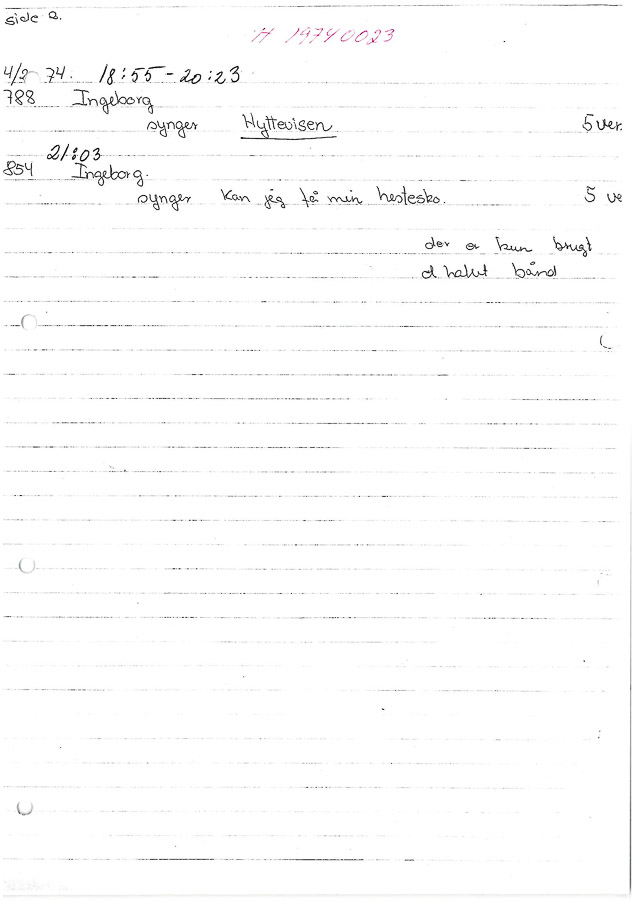 side 2.
H 19740023
4/2 74. 18:55 - 20:23
788 Ingeborg
synger Hyttevisen 5 ver.
21:03
854 Ingeborg.
synger Kan jeg få min hestesko. 5 ve
der er kun brugt
et halvt bånd